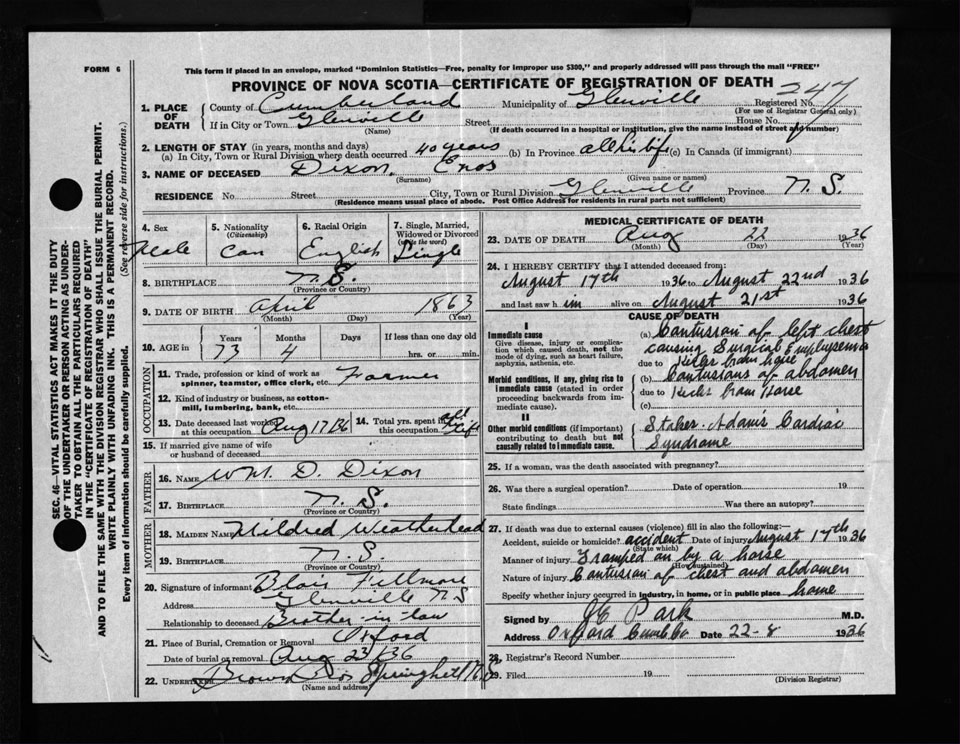 FORM 6
This form if placed in an envelope, marked "Dominion Statistics—Free, penalty for improper use $300," and properly addressed will pass through the mail "FREE"
PROVINCE OF NOVA SCOTIA—CERTIFICATE OF REGISTRATION OF DEATH
247
1. PLACE OF DEATH
County of Cumberland Municipality of Glenville Registered No.
(For use of Registrar General only)
If in City or Town Glenville Street House No.
(Name) (If death occurred in a hospital or institution, give the name instead of street and number)
2. LENGTH OF STAY (in years, months and days)
(a) In City, Town or Rural Division where death occurred 40 years (b) In Province all his life (c) In Canada (if immigrant)
3. NAME OF DECEASED Dixon, Enos
(Surname) (Given name or names)
RESIDENCE No. Street City, Town or Rural Division Glenville Province N. S.
(Residence means usual place of abode. Post Office Address for residents in rural parts not sufficient)
4. Sex Male
5. Nationality (Citizenship) Can
6. Racial Origin English
7. Single, Married, Widowed or Divorced (write the word) Single
8. BIRTHPLACE N. S.
(Province or Country)
9. DATE OF BIRTH April 1863
(Month) (Day) (Year)
10. AGE in Years Months Days If less than one day old
73 4 hrs. or min.
OCCUPATION
11. Trade, profession or kind of work as spinner, teamster, office clerk, etc. Farmer
12. Kind of industry or business, as cotton-mill, lumbering, bank, etc.
13. Date deceased last worked at this occupation Aug 17/36
14. Total yrs. spent in this occupation all life
15. If married give name of wife or husband of deceased
FATHER
16. NAME Wm. D. Dixon
17. BIRTHPLACE N. S.
(Province or Country)
MOTHER
18. MAIDEN NAME Mildred Weatherhead
19. BIRTHPLACE N. S.
(Province or Country)
20. Signature of informant Blair Fillmore
Address Glenville N S
Relationship to deceased Brother-in-law
21. Place of Burial, Cremation or Removal Oxford
Date of burial or removal Aug 23/36
22. UNDERTAKER Brown Springhill N.S.
(Name and address)
MEDICAL CERTIFICATE OF DEATH
23. DATE OF DEATH Aug 22 1936
(Month) (Day) (Year)
24. I HEREBY CERTIFY that I attended deceased from:
August 17th 1936 to August 22nd 1936
and last saw him alive on August 21st 1936
CAUSE OF DEATH
I
Immediate cause
Give disease, injury or complication which caused death, not the mode of dying, such as heart failure, asphyxia, asthenia, etc.
(a) Contussion of left chest
causing Surgical Emphysema
due to Kicks from horse
Morbid conditions, if any, giving rise to immediate cause (stated in order proceeding backwards from immediate cause).
(b) Contussions of abdomen
due to Kicks from Horse
(c)
II
Other morbid conditions (if important) contributing to death but not causally related to immediate cause.
Stoker-Adams Cardiac
Syndrome
25. If a woman, was the death associated with pregnancy?
26. Was there a surgical operation? Date of operation 19
State findings Was there an autopsy?
27. If death was due to external causes (violence) fill in also the following:—
Accident, suicide or homicide? accident Date of injury August 17th 1936
(State which)
Manner of injury Tramped on by a horse
(How sustained)
Nature of injury Contussion of chest and abdomen
Specify whether injury occurred in industry, in home, or in public place home
Signed by Park M.D.
Address Oxford Cumb Co Date 22-8 1936
28. Registrar's Record Number
29. Filed 19
(Division Registrar)
SEC. 46—VITAL STATISTICS ACT MAKES IT THE DUTY
OF THE UNDERTAKER OR PERSON ACTING AS UNDER-
TAKER TO OBTAIN ALL THE PARTICULARS REQUIRED
IN THE "CERTIFICATE OF REGISTRATION OF DEATH"
AND TO FILE THE SAME WITH THE DIVISION REGISTRAR WHO SHALL ISSUE THE BURIAL PERMIT.
WRITE PLAINLY WITH UNFADING INK. THIS IS A PERMANENT RECORD.
Every item of information should be carefully supplied. (See reverse side for instructions.)